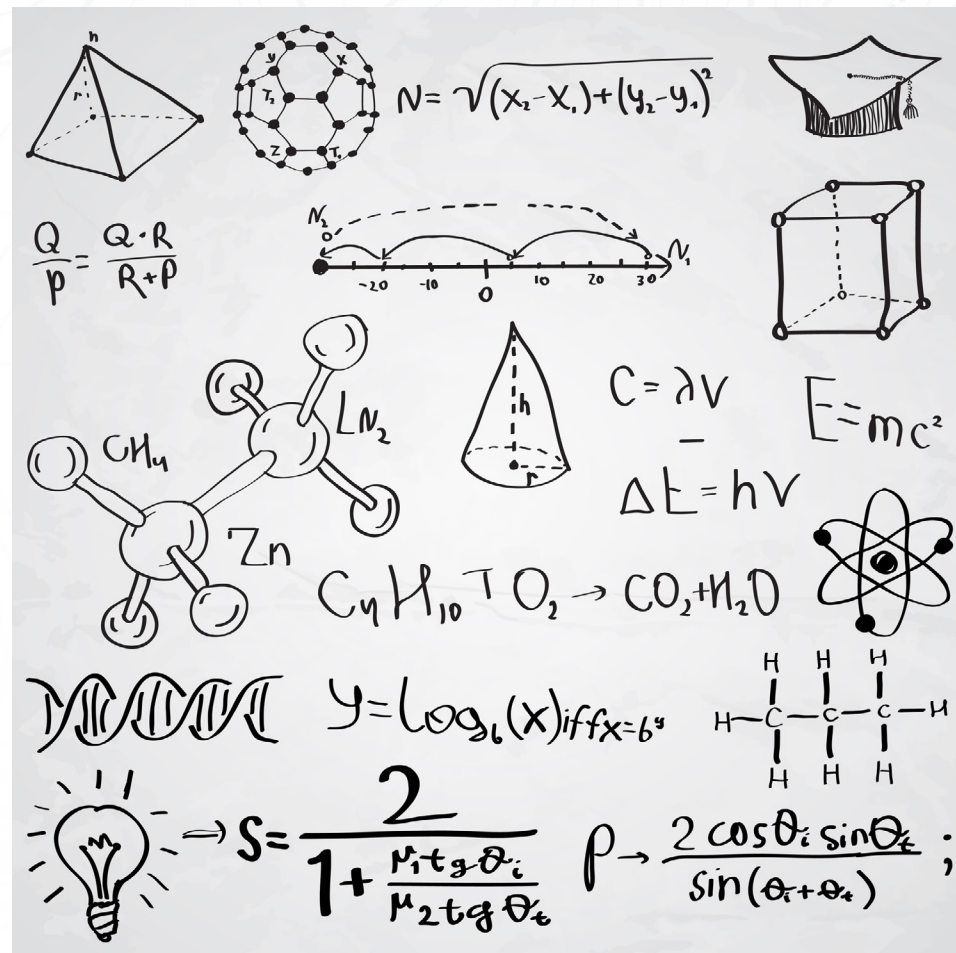 h
r
y x
T₂
Z T₁
N= √(x₂-x₁)+(y₂-y₁)²
Q/p = Q·R/R+P
N₂
N₁
-20 -10 0 10 20 30
LN₂
CH₄
Zn
h
r
C=λV
−
Δt=hV
E=mc²
C₄H₁₀TO₂→CO₂+H₂O
y=log₆(x)iffx=6ʸ
H H H
H-C-C-C-H
H H H
→ S= 2/1+ μ₁tgθᵢ/μ₂tgθₜ
ρ→ 2cosθᵢsinθₜ/sin(θᵢ+θₜ) ;